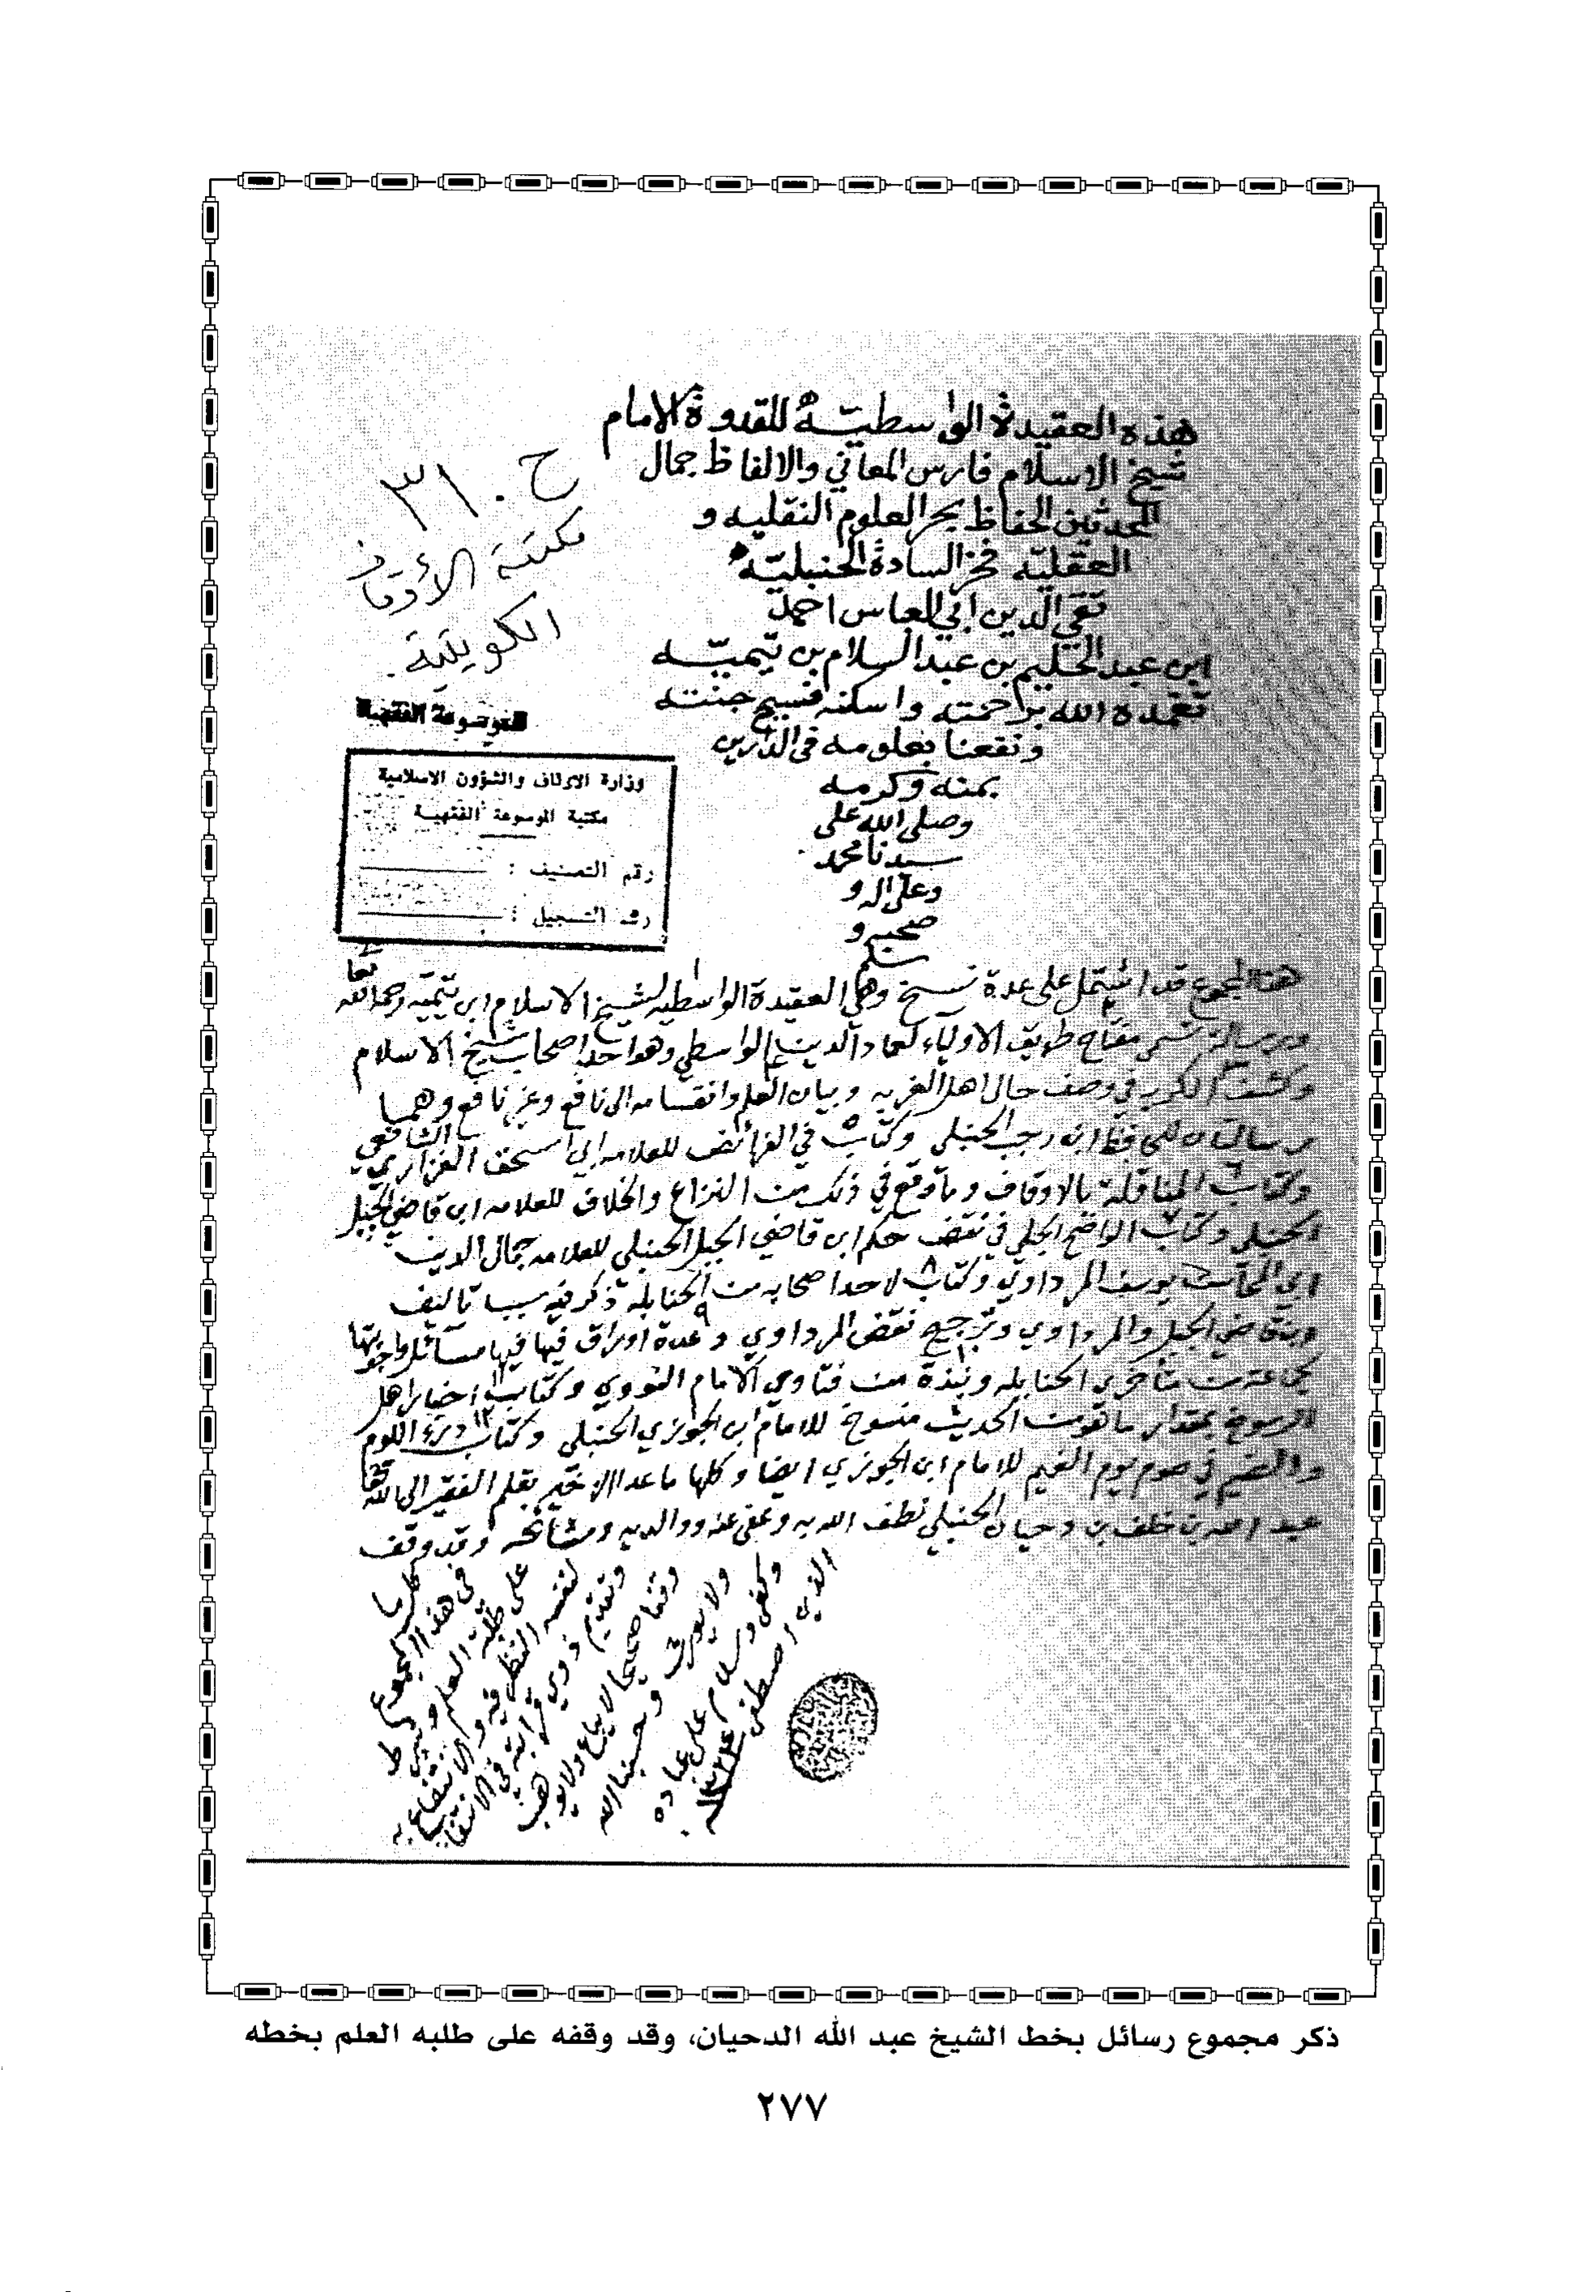 هذه العقيدة الواسطيّة للقدوة الامام
شيخ الاسلام فارس المعاني والالفاظ جمال
المحدثين الحفاظ بحر العلوم النقليه و
العقليّه فخر السادة الحنبليّه
تقي الدين ابي العباس احمد
ابن عبد الحليم بن عبد السلام بن تيميّه
تغمده الله برحمته واسكنه فسيح جنته
ونفعنا بعلومه في الدارين
بمنه وكرمه
وصلى الله على
سيدنا محمد
وعلى اله و
صحبه و
سلم
ح ٣١٠
مكتبة الأوقاف
الكويتية
الموسوعة الفقهية
وزارة الاوقاف والشؤون الاسلامية
مكتبة الموسوعة الفقهية
رقم التصنيف :
رقم التسجيل :
هذا المجموع قد اشتمل على عدة نسخ وهي العقيدة الواسطيه لشيخ الاسلام ابن تيميّه رحمه الله تعا
ورسالة تسمى مفتاح طريق الاولياء لعماد الدين الواسطي وهو احد اصحاب شيخ الاسلام
وكشف الكربه في وصف حال اهل الغربه وبيان العلم وانقسامه الى نافع وغير نافع وهما
رسالتان للحافظ ابن رجب الحنبلي وكتاب في الفرائض للعلامه ابي اسحق الفزاري الشافعي
وكتاب المناقلة بالاوقاف وما وقع في ذلك من النزاع والخلاف للعلامه ابن قاضي الجبل
الحنبلي وكتاب الواضح الجلي في نقض حكم ابن قاضي الجبل الحنبلي للعلامه جمال الدين
ابي المحاسن يوسف المرداوي وكتاب لاحد اصحابه من الحنابله ذكر فيه سبب تاليف
ابن قاضي الجبل والمرداوي وترجيح نقض المرداوي وعدة اوراق فيها فيها مسائل واجوبتها
لجماعة من متأخري الحنابله ونبذة من فتاوى الامام النووي وكتاب اخبار اهل
الرسوخ بمقدار ما تقوت الحديث منسوخ للامام ابن الجوزي الحنبلي وكتاب درء اللوم
والضيم في صوم يوم الغيم للامام ابن الجوزي ايضا وكلها ما عدا الاخير بقلم الفقير الى الله تعا
عبد الله بن خلف بن دحيان الحنبلي لطف الله به وعفى عنه ووالديه ومشائخه وقد وقف
كلما
في هذا المجموع
على طلبة العلم وشرط
لنفسه النظر فيه والانتفاع به
وتقديم ذوي قرابته في الانتفاع
وقفا صحيحا لا يباع ولا يوهب
ولا يورث وحسبنا الله
وكفى وسلام على عباده
الذين اصطفى
ذكر مجموع رسائل بخط الشيخ عبد الله الدحيان، وقد وقفه على طلبه العلم بخطه
٢٧٧